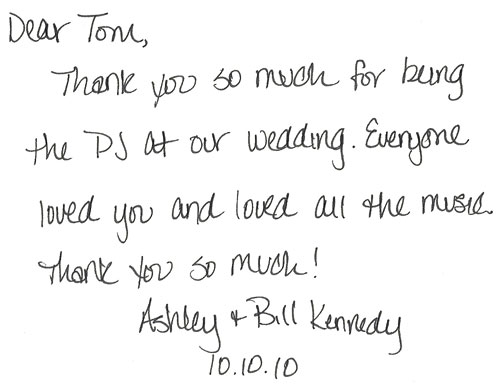 Dear Tom,
Thank you so much for being
the DJ at our wedding. Everyone
loved you and loved all the music.
Thank you so much!
Ashley + Bill Kennedy
10.10.10